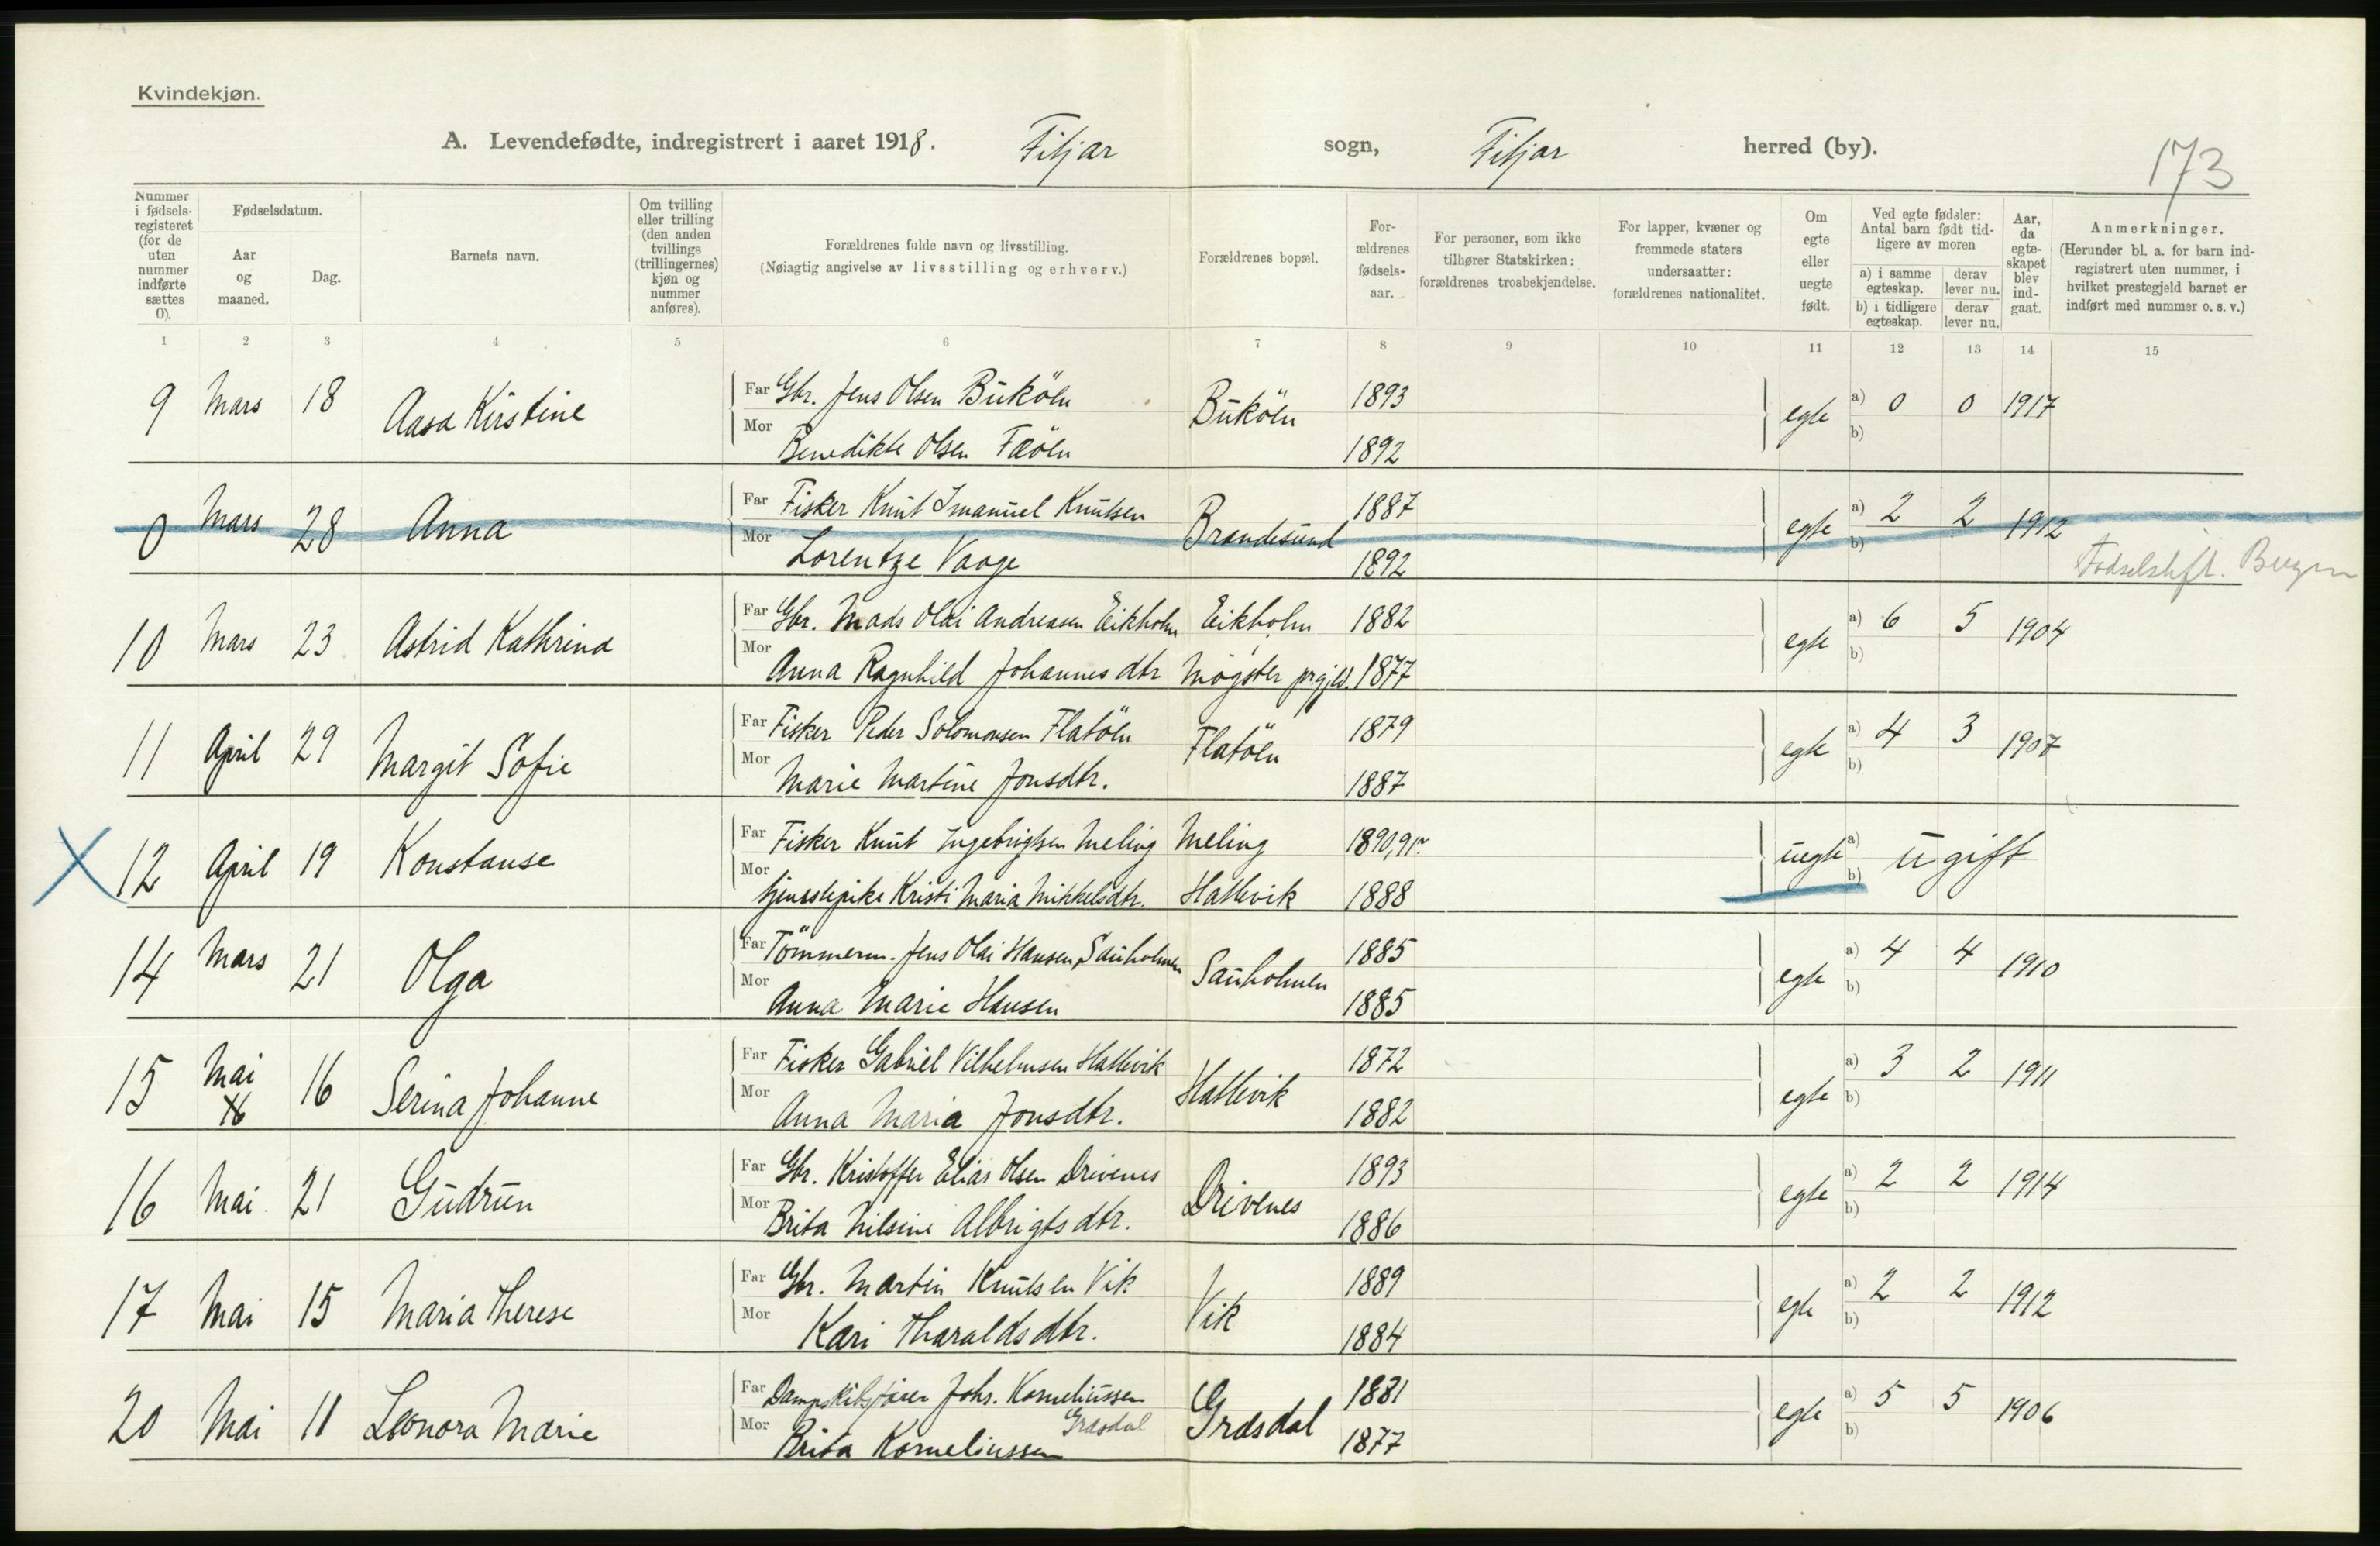 Kvindekjøn.
A. Levendefødte, indregistrert i aaret 1918. Fitjar sogn, Fitjar herred (by).
173
Nummer i fødselsregisteret (for de uten nummer indførte sættes 0).
Fødselsdatum.
Aar og maaned.
Dag.
Barnets navn.
Om tvilling eller trilling (den anden tvillings (trillingernes) kjøn og nummer anføres).
Forældrenes fulde navn og livsstilling.
(Nøiagtig angivelse av livsstilling og erhverv.)
Forældrenes bopæl.
Forældrenes fødselsaar.
For personer, som ikke tilhører Statskirken: forældrenes trosbekjendelse.
For lapper, kvæner og fremmede staters undersaatter: forældrenes nationalitet.
Om egte eller uegte født.
Ved egte fødsler: Antal barn født tidligere av moren
a) i samme egteskap. derav lever nu.
b) i tidligere egteskap. derav lever nu.
Aar, da egteskapet blev indgaat.
Anmerkninger.
(Herunder bl. a. for barn indregistrert uten nummer, i hvilket prestegjeld barnet er indført med nummer o. s. v.)
1 2 3 4 5 6 7 8 9 10 11 12 13 14 15
9 Mars 18 Aasa Kirstine Far Gbr. Jens Olsen Buköen Buköen 1893 egte a) 0 0 1917
Mor Benedikte Olsen Faöen 1892 b)
0 Mars 28 Anna Far Fisker Knut Imanuel Knutsen Brandesund 1887 egte a) 2 2 1912
Mor Lorentze Vaage 1892 b) Fødselstift. Bergen
10 Mars 23 Astrid Kathrina Far Gbr. Mads Olai Andreasen Eikholm Eikholm 1882 egte a) 6 5 1904
Mor Anna Ragnhild Johannesdtr Møgster prgjld. 1877 b)
11 April 29 Margit Sofie Far Fisker Peder Solomonsen Flatöen Flatöen 1879 egte a) 4 3 1907
Mor Marie Martine Jonsdtr. 1887 b)
X 12 April 19 Konstanse Far Fisker Knut Ingebrigtsen Meling Meling 1890, uegte a) ugift
Mor tjenestepike Kristi Maria Mikkelsdtr. Hatlevik 1888 b)
14 Mars 21 Olga Far Tömmerm. Jens Olai Hansen, Sauholmen Sauholmen 1885 egte a) 4 4 1910
Mor Anna Marie Hansen 1885 b)
15 Mai 16 Serina Johanne Far Fisker Gabriel Vilhelmsen Hatlevik Hatlevik 1872 egte a) 3 2 1911
Mor Anna Maria Jonsdtr. 1882 b)
16 Mai 21 Gudrun Far Gbr. Kristoffer Elias Olsen Drivenes Drivenes 1893 egte a) 2 2 1914
Mor Brita Nilsine Albrigtsdtr. 1886 b)
17 Mai 15 Maria Therese Far Gbr. Martin Knutsen Vik Vik 1889 egte a) 2 2 1912
Mor Kari Tharaldsdtr. 1884 b)
20 Mai 11 Leonora Marie Far Dampskibsfører Johs. Korneliussen Grasdal Grasdal 1881 egte a) 5 5 1906
Mor Brita Korneliussen 1877 b)